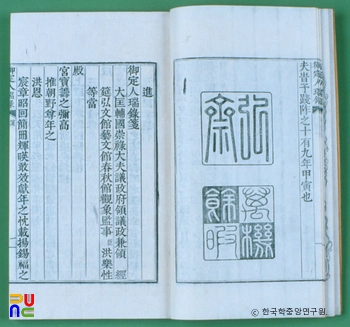 夫峕予踐阼之十有九年甲寅也
弘齋
萬機
餘暇
進
御定人瑞錄箋
大匡輔國崇祿大夫議政府領議政兼領 經
筵弘文館藝文館春秋館觀象監事 洪樂性
等當
殿
宮寶壽之彌高
推朝野尊年之
洪恩
宸章昭回簡冊輝暎敢效獻年之忱載揚錫福之
御定人瑞錄
© 한국학중앙연구원